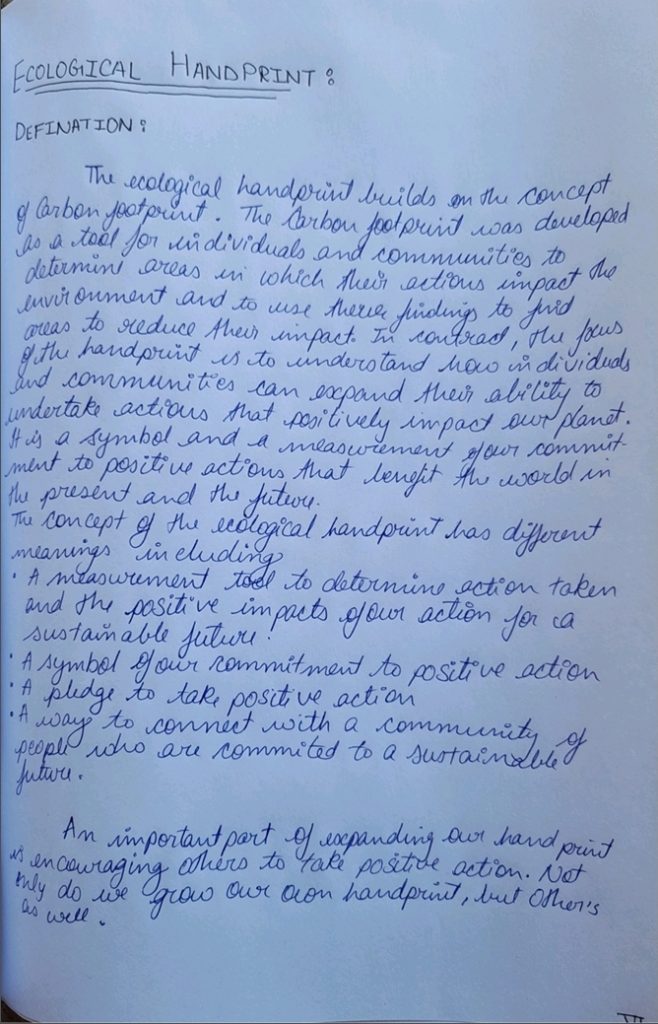 ECOLOGICAL HANDPRINT:
DEFINATION:
The ecological handprint builds on the concept
of Carbon footprint. The Carbon footprint was developed
as a tool for individuals and communities to
determine areas in which their actions impact the
environment and to use these findings to find
areas to reduce their impact. In contract, the focus
of the handprint is to understand how individuals
and communities can expand their ability to
undertake actions that positively impact our planet.
It is a symbol and a measurement of our commit-
ment to positive actions that benefit the world in
the present and the future.
The concept of the ecological handprint has different
meanings including
• A measurement tool to determine action taken
and the positive impacts of our action for a
sustainable future.
• A symbol of our commitment to positive action
• A pledge to take positive action
• A way to connect with a community of
people who are commited to a sustainable
future.
An important part of expanding our hand print
is encouraging others to take positive action. Not
only do we grow our own handprint, but Other's
as well.